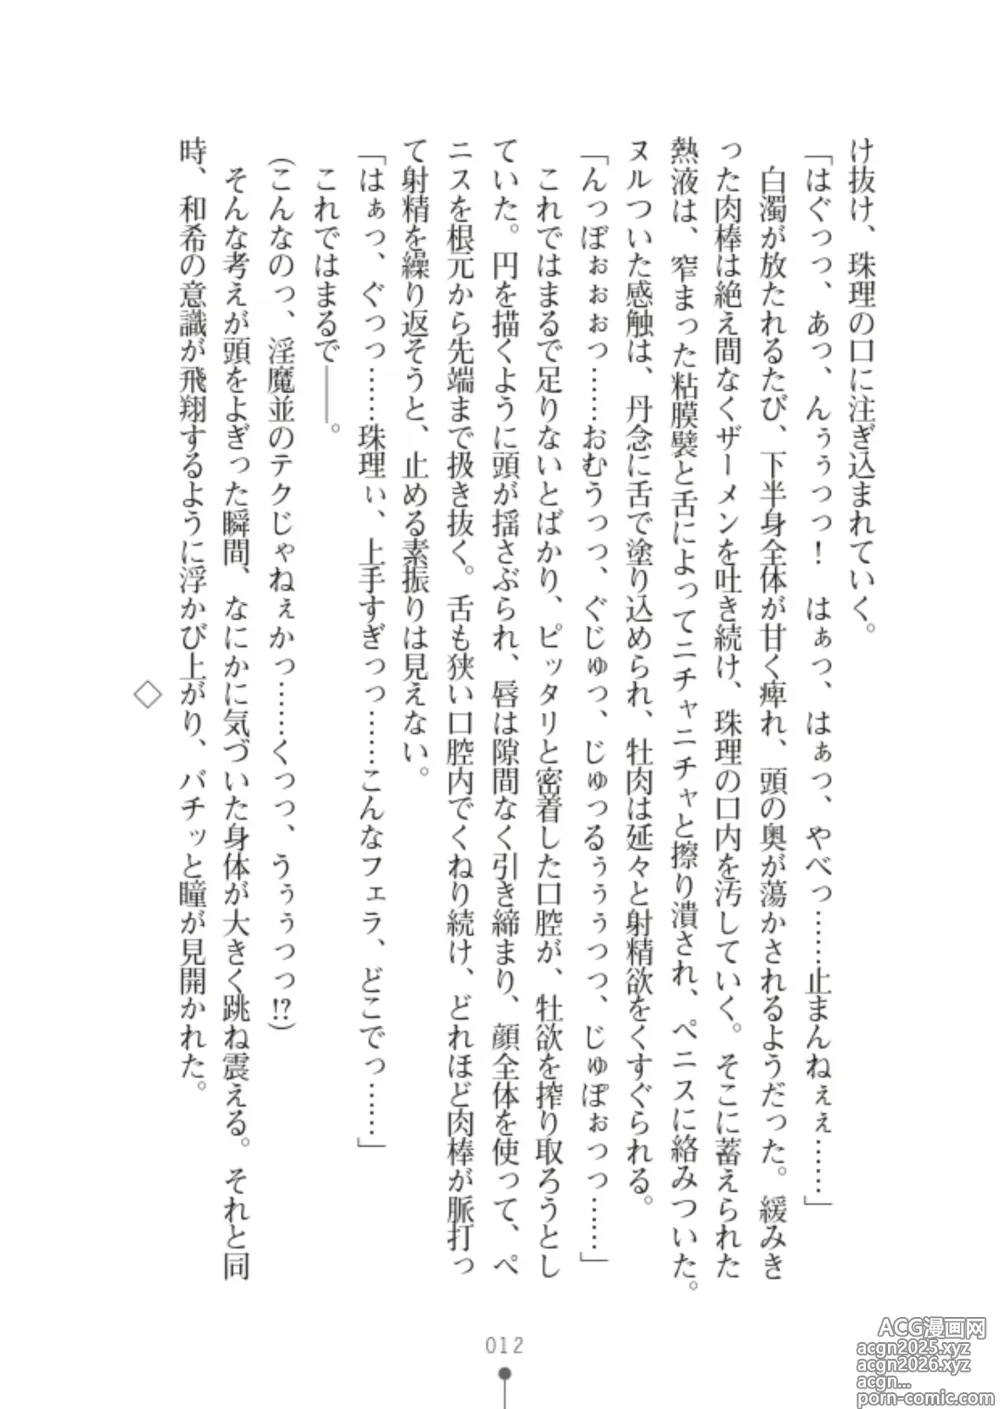 け抜け、珠理の口に注ぎ込まれていく。
「はぐっっ、あっ、んぅぅっっ！　はぁっ、はぁっ、やべっ……止まんねぇぇ……」
　白濁が放たれるたび、下半身全体が甘く痺れ、頭の奥が蕩かされるようだった。緩みき
った肉棒は絶え間なくザーメンを吐き続け、珠理の口内を汚していく。そこに蓄えられた
熱液は、窄まった粘膜襞と舌によってニチャニチャと擦り潰され、ペニスに絡みついた。
ヌルついた感触は、丹念に舌で塗り込められ、牡肉は延々と射精欲をくすぐられる。
「んっぼぉぉぉっ……おむうっっ、ぐじゅっ、じゅっるぅぅぅっっ、じゅぽぉっっ……」
　これではまるで足りないとばかり、ピッタリと密着した口腔が、牡欲を搾り取ろうとし
ていた。円を描くように頭が揺さぶられ、唇は隙間なく引き締まり、顔全体を使って、ペ
ニスを根元から先端まで扱き抜く。舌も狭い口腔内でくねり続け、どれほど肉棒が脈打っ
て射精を繰り返そうと、止める素振りは見えない。
「はぁっ、ぐっっ……珠理ぃ、上手すぎっっ……こんなフェラ、どこでっ……」
　これではまるで――。
（こんなのっ、淫魔並のテクじゃねぇかっ……くっっ、うぅぅっっ!?）
　そんな考えが頭をよぎった瞬間、なにかに気づいた身体が大きく跳ね震える。それと同
時、和希の意識が飛翔するように浮かび上がり、バチッと瞳が見開かれた。
◇
012
ACG漫画网
acgn2025.xyz
acgn2026.xyz
acgn...
porn-comic.com